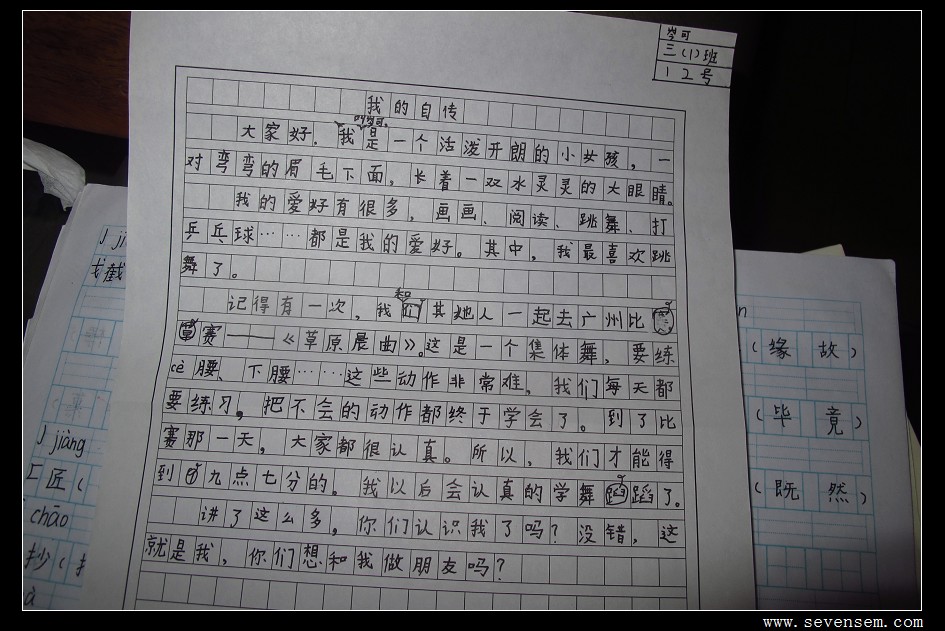 岑可
三(1)班
12号
我的自传
叫岑可。
大家好.我是一个活泼开朗的小女孩,一
对弯弯的眉毛下面,长着一双水灵灵的大眼睛。
我的爱好有很多,画画、阅读、跳舞、打
乒乓球……都是我的爱好。其中,我最喜欢跳
舞了。
和
记得有一次,我其她人一起去广州比
赛——《草原晨曲》。这是一个集体舞,要练
cè腰、下腰……这些动作非常难。我们每天都
要练习,把不会的动作都终于学会了。到了比
赛那一天,大家都很认真。所以,我们才能得
到九点七分的。我以后会认真的学舞蹈了。
讲了这么多,你们认识我了吗?没错,这
就是我,你们想和我做朋友吗?
戈截
J jiàng
工匠(
chāo
抄(扌
à
n
(缘故)
(毕竟)
(既然)
www.sevensem.com